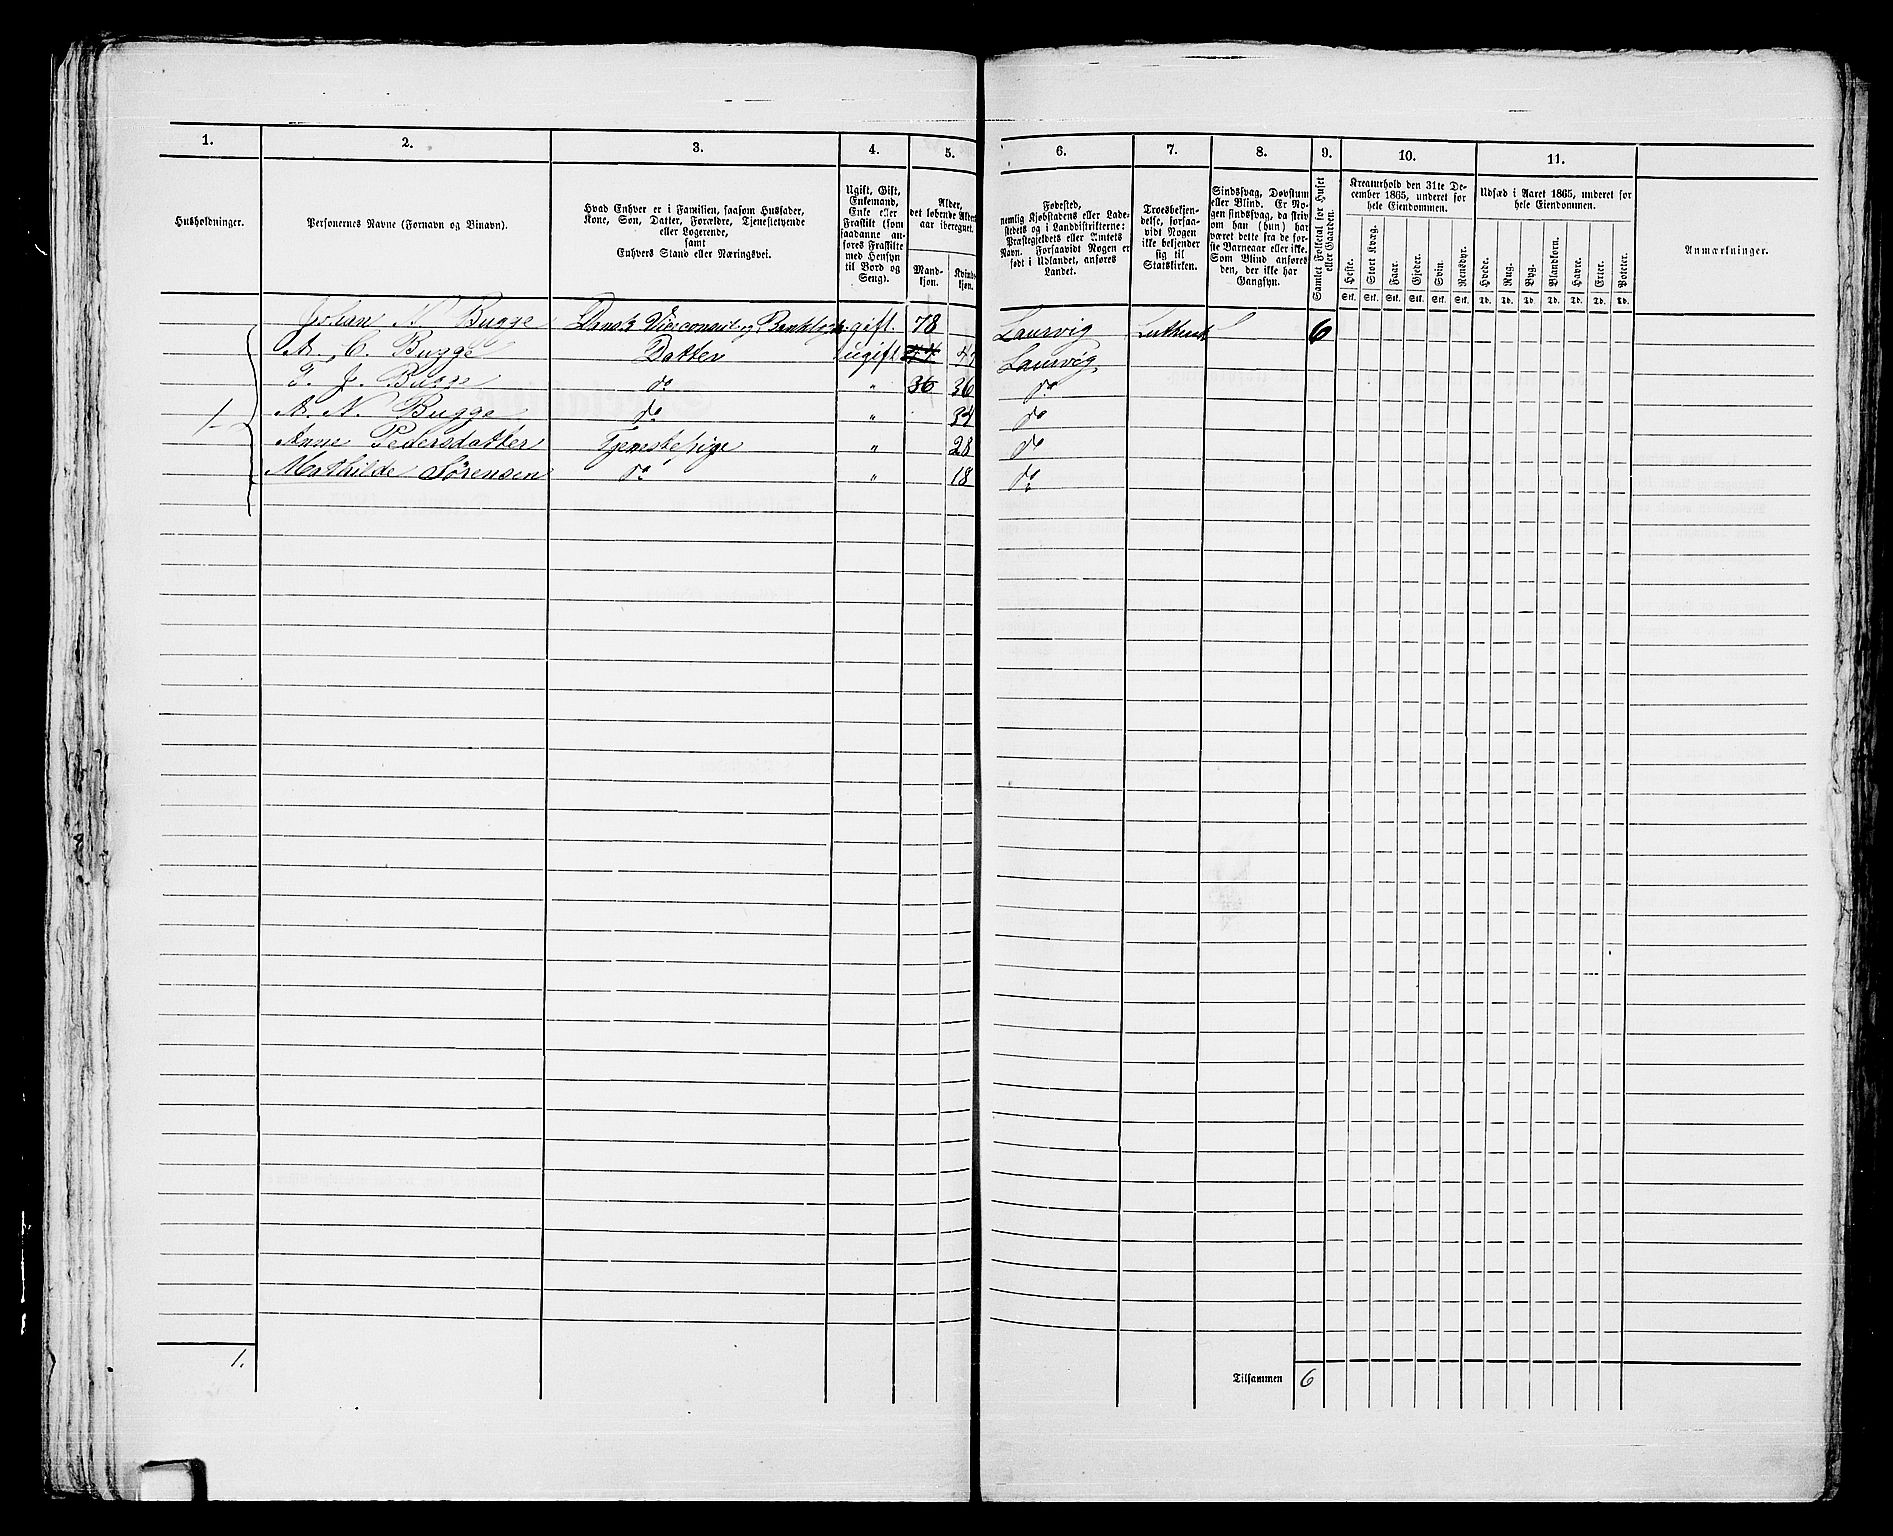 1. 2. 3. 4. 5. 6. 7. 8. 9. 10. 11.
Husholdninger.
Personernes Navne (Fornavn og Binavn).
Hvad Enhver er i Familien, saasom Husfader,
Kone, Søn, Datter, Forældre, Tjenestetyende
eller Logerende,
samt
Enhvers Stand eller Næringsvei.
Ugift, Gift,
Enkemand,
Enke eller
Fraskilt (som
saadanne an-
føres Fraskilte
med Hensyn
til Bord og
Seng).
Alder,
det løbende Alders-
aar iberegnet.
Mand-
kjøn.
Kvinde-
kjøn.
Fødested,
nemlig Kjøbstadens eller Lade-
stedets og i Landdistrikterne:
Præstegjeldets eller Amtets
Navn. Forsaavidt Nogen er
født i Udlandet, anføres
Landet.
Troesbekjen-
delse, forsaa-
vidt Nogen
ikke bekjender
sig til
Statskirken.
Sindssvag, Døvstum
eller Blind. Er No-
gen sindssvag, da skriv
om han (hun) har
været dette fra de for-
ste Barneaar eller ikke.
Som Blind anføres
den, der ikke har
Gangsyn.
Samlet Folketal for Huset
eller Gaarden.
Kreaturhold den 31te De-
cember 1865, underet for
hele Eiendommen.
Heste. Stort Kvæg. Faar. Gjeder. Svin. Rensdyr.
Stk. Stk. Stk. Stk. Stk. Stk.
Udsæd i Aaret 1865, underet for
hele Eiendommen.
Hvede. Rug. Byg. Blandkorn. Havre. Erter. Poteter.
Td. Td. Td. Td. Td. Td. Td.
Anmærkninger.
Johan N. Bugge Dansk Viceconsul og gift. 78 Laurvig Luthersk 6
A. C. Bugge Datter ugift Laurvig
T. J. Bugge do " 36 36 do
1 A. N. Bugge do " 34 do
Anne Pedersdatter Tjenestepige " 28 do
Mathilde Sørensen do " 18 do
1.
Tilsammen 6